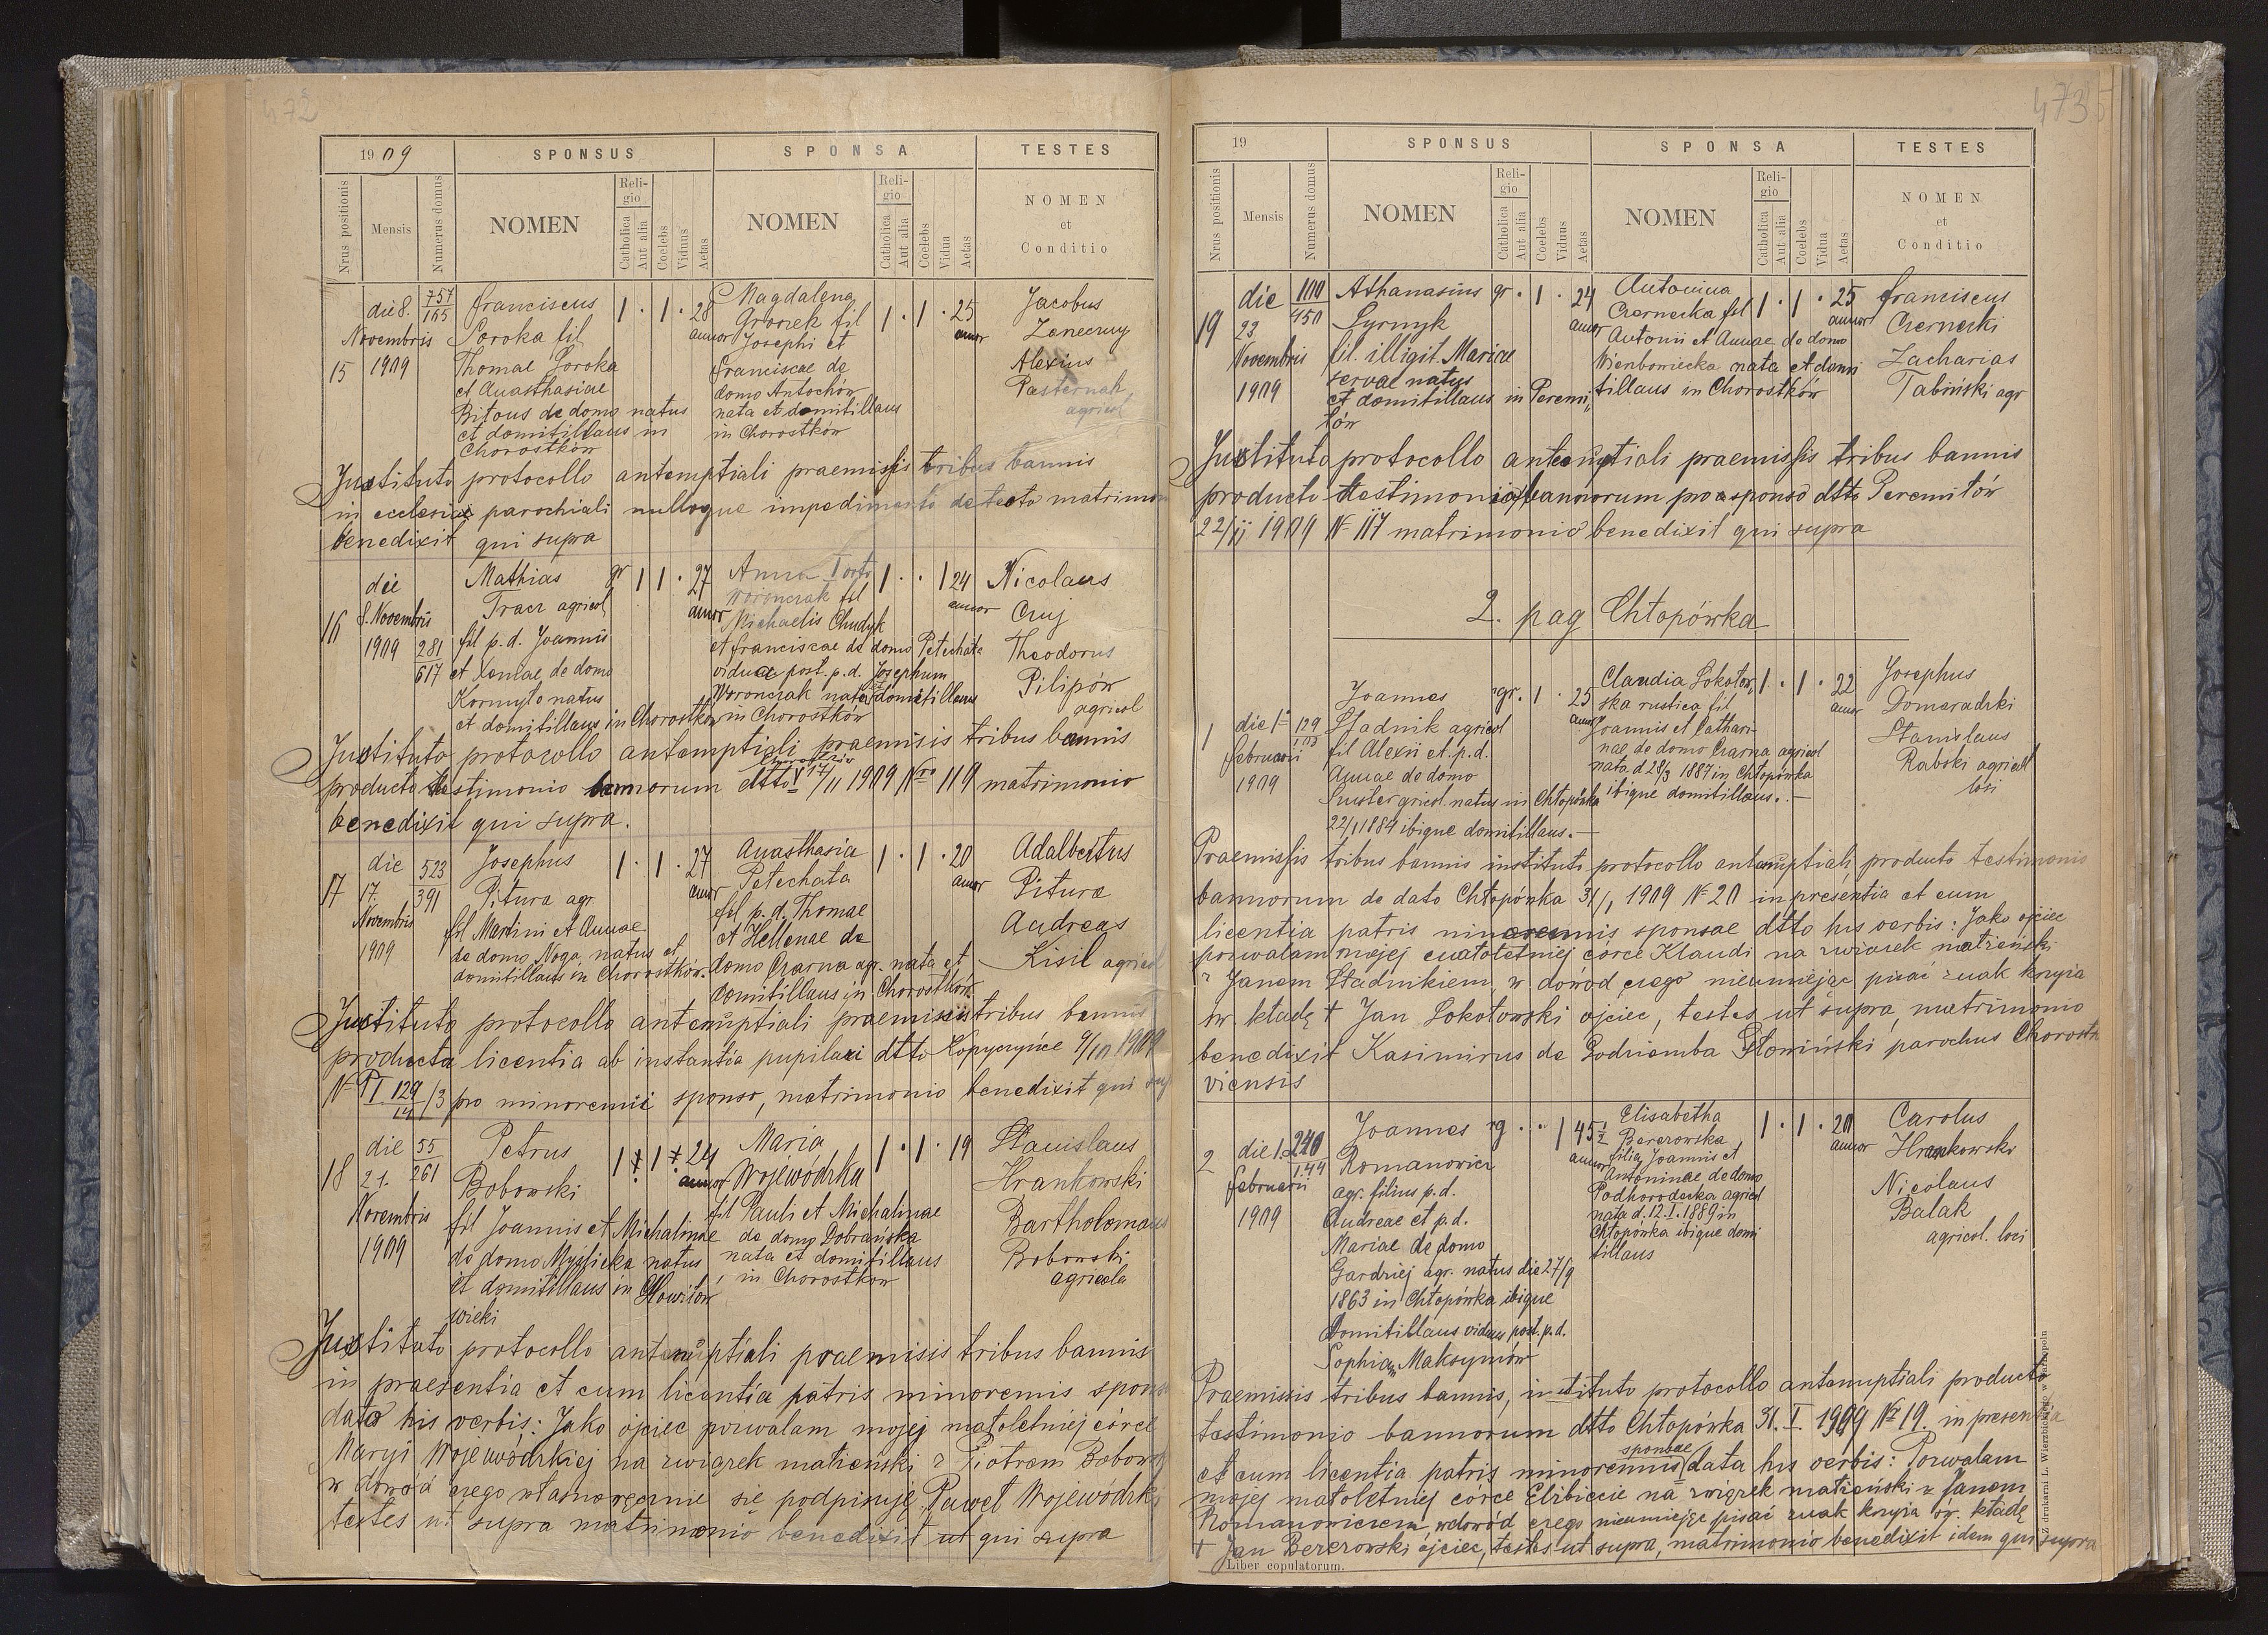 472
1909
SPONSUS
SPONSA
TESTES
Nrus positionis
Mensis
Numerus domus
NOMEN
Religio
Catholica
Aut alia
Coelebs
Viduus
Aetas
NOMEN
Religio
Catholica
Aut alia
Coelebs
Vidua
Aetas
NOMEN
et
Conditio
15
die 8.
Novembris
1909
757
165
Franciscus
Soroka fil
Thomae Soroka
et Anasthasiae
Bitous de domo natus
et domitillaus in
Chorostków
1 . 1 . 28
annor
Magdalena
Groszek fil
Josephi et
Franciscae de
domo Antochów
nata et domitillaus
in Chorostków
1 . 1 . 25
annor
Jacobus
Zaneczny
Alexius
Pasternak
agricol
Instituto protocollo antenuptiali praemissis tribus bannis
in ecclesia parochiali nulloque impedimento detecto matrimon
benedixit qui supra
16
die
8. Novembris
1909
281
617
Mathias
Tracz agricol
fil p.d. Joannis
et Xeniae de domo
Kormyło natus
et domitillaus in Chorostków
gr 1 1 . 27
annor
Anna I voto
Woronczak fil
Michaelis Chudyk
et Franciscae de domo Petechata
vidua post. p.d. Josephum
Woronczak nata domitillaus
in Chorostków
1 . . 1 24
annor
Nicolaus
Cruj
Theodorus
Pilipów
agricol
Instituto protocollo antenuptiali praemisis tribus bannis
producto testimonio bannorum dtto Chorostków 17/11 1909 Nro 119 matrimonio
benedixit qui supra.
17
die
17.
Novembris
1909
523
391
Josephus
Pitura agr.
fil Martini et Annae
de domo Noga, natus et
domitillaus in Chorostków.
1 . 1 . 27
annor
Anasthasia
Petechata
fil p.d. Thomae
et Hellenae de
domo Czarna agr. nata et
domitillaus in Chorostków
1 . 1 . 20
annor
Adalbertus
Pitura
Andreas
Kisil agricol
Instituto protocollo antenuptiali praemisis tribus bannis
producta licentia ab instantia pupilari dtto Kopyczyńce 9/10 1909
No PI 129/14/3 pro minorenni sponso, matrimonio benedixit qui sup
18
die
21.
Novembris
1909
55
261
Petrus
Bobowski
fil Joannis et Michalinae
de domo Myslicka natus
et domitillaus in Howiłów
wieki
1 . 1 . 24
annor
Maria
Wojewódzka
fil Pauli et Michalinae
de domo Dobrańska
nata et domitillaus
in Chorostków
1 . 1 . 19
Stanislaus
Hrankowski
Bartholomaeus
Bobowski
agricola
Instituto protocollo antenuptiali praemisis tribus bannis
in praesentia et cum licentia patris minorenis spons
data his verbis: Jako ojciec pozwalam mojej małoletniej córce
Maryi Wojewódzkiej na związek małżeński z Piotrem Bobowsk
w dowód czego własnoręcznie się podpisuję Paweł Wojewódzki
testes ut supra matrimonio benedixit ut qui supra
473
19
SPONSUS
SPONSA
TESTES
Nrus positionis
Mensis
Numerus domus
NOMEN
Religio
Catholica
Aut alia
Coelebs
Viduus
Aetas
NOMEN
Religio
Catholica
Aut alia
Coelebs
Vidua
Aetas
NOMEN
et
Conditio
19
die
23
Novembris
1909
100
450
Athanasius
Syrnyk
fil. illigit. Mariae
servae natus
et domitillaus in Peremi,
łów
gr . 1 . 24
annor
Antonina
Czernecka fil
Antonii et Annae de domo
Wienboniecka nata et domi
tillaus in Chorostków
1 . 1 . 25
annor
Franciscus
Czernecki
Zacharias
Tabiński agr
Instituto protocollo antenuptiali praemissis tribus bannis
producto testimonio bannorum pro sponso dtto Peremiłów
22/11 1909 No 117 matrimonio benedixit qui supra
2. pag Chłopówka
1
die 1a
Februarii
1909
129
103
Joannes
Stadnik agricol
fil Alexii et p.d.
Annae de domo
Suster gricol. natus in Chłopówka
22/1 1884 ibique domitillaus.—
rgr. 1 . 25
annor
Claudia Sokołow,
ska rustica fil
Joannis et Cathari-
nae de domo Czarna agricol
nata d 28/3 1887 in Chłopówka
ibique domitillaus.—
1 . 1 . 22
annor
Josephus
Domaradzki
Stanislaus
Rabski agricol
loci
Praemissis tribus bannis instituto protocollo antenuptiali producto testimonio
bannorum de dato Chłopówka 31/1 1909 No 20 in presentia et cum
licentia patris minorennis sponsae dtto his verbis: Jako ojciec
pozwalam mojej małoletniej córce Klaudi na związek małżeński
z Janem Stadnikiem, w dowód czego nieumiejąc pisać znak krzyża
św. kładę † Jan Sokołowski ojciec, testes ut supra, matrimonio
benedixit Kasimirus de Godziemba Słomiński parochus Chorostk
viensis
2
die 1.
Februarii
1909
240
144
Joannes
Romanowicz
agr. filius p.d.
Andreae et p.d.
Mariae de domo
Gardziej agr. natus die 27/9
1863 in Chłopówka ibique
Domitillaus viduus post. p.d.
Sophiam Maksymów
rg . . 1 45 1/2
annor
Elisabetha
Berezowska
filia Joannis et
Antoninae de domo
Podhorodecka agricol
nata d. 12. I. 1889 in
Chłopówka ibique domi
tillaus
1 . 1 . 20
annor
Carolus
Hrankowski
Nicolaus
Balak
agricol. loci
Praemissis tribus bannis, instituto protocollo antenuptiali producto
testimonio bannorum dtto Chłopówka 31. I. 1909 No 19. in presentia
et cum licentia patris minorennis sponsae data his verbis: Pozwalam
mojej małoletniej córce Elżbiecie na związek małżeński z Janem
Romanowiczem, w dowód czego nieumiejąc pisać znak krzyża św. kładę
† Jan Berezowski ojciec, testes ut supra, matrimonio benedixit idem qui supra
Liber copulatorum.
Z drukarni L. Wierzbickiego w Tarnopolu